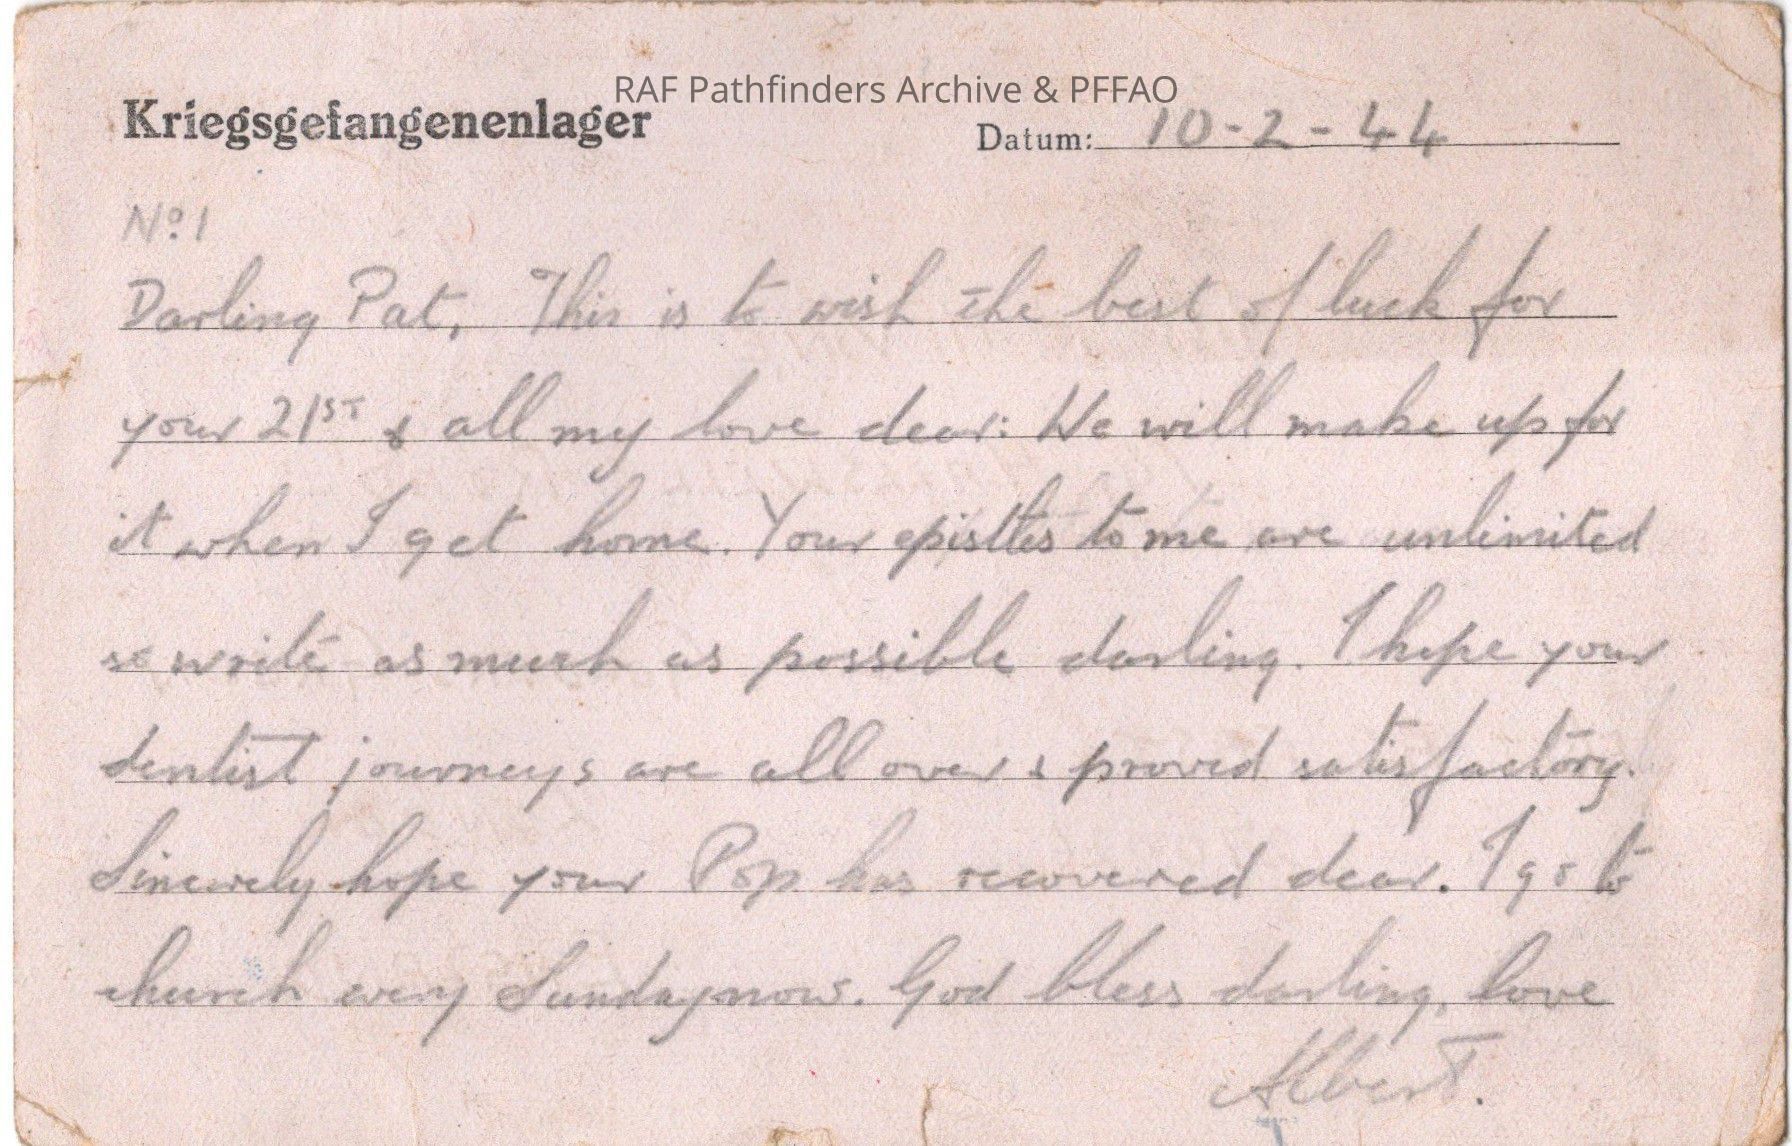 RAF Pathfinders Archive & PFFAO
Kriegsgefangenenlager
Datum: 10-2-44
Nº 1
Darling Pat, This is to wish the best of luck for
your 21ST & all my love dear: We will make up for
it when I get home. Your epistles to me are unlimited
so write as much as possible darling. I hope your
dentist journeys are all over & proved satisfactory.
Sincerely hope your Pop has recovered dear. I go to
church every Sunday now. God bless darling, love
Albert.